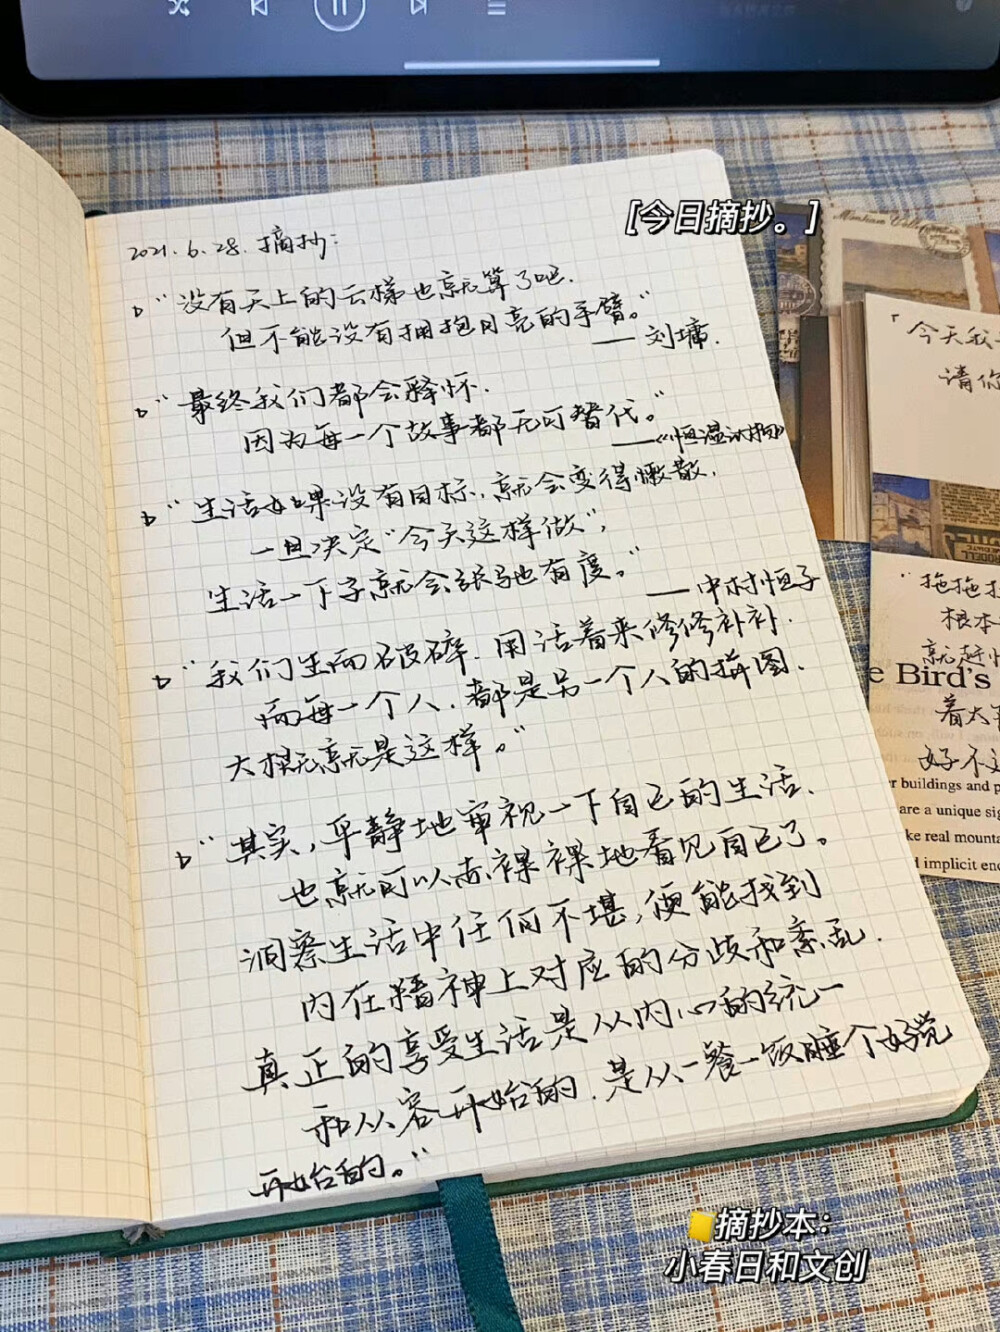 [今日摘抄。]
2021.6.28.摘抄:
“没有天上的云梯也就算了吧.
但不能没有拥抱月亮的手臂。”
——刘墉.
“最终我们都会释怀.
因为每一个故事都无可替代。”
——《恒温冰物》
“生活如果没有目标,就会变得懒散,
一旦决定“今天这样做”,
生活一下子就会张弛有度。”
——中村恒子
“我们生而破碎.用活着来修修补补.
而每一个人.都是另一个人的拼图.
大概就是这样。”
“其实,平静地审视一下自己的生活.
也就可以赤裸裸地看见自己了。
洞察生活中任何不堪,便能找到
内在精神上对应的分歧和紊乱.
真正的享受生活是从内心的统一
和从容开始的.是从一餐一饭睡个好觉
开始的。”
「今天我
请你
“拖拖拉
根本
就赶忙
e Bird's
着太
好不
er buildings and p
are a unique sig
ke real mounta
d implicit enc
摘抄本:
小春日和文创